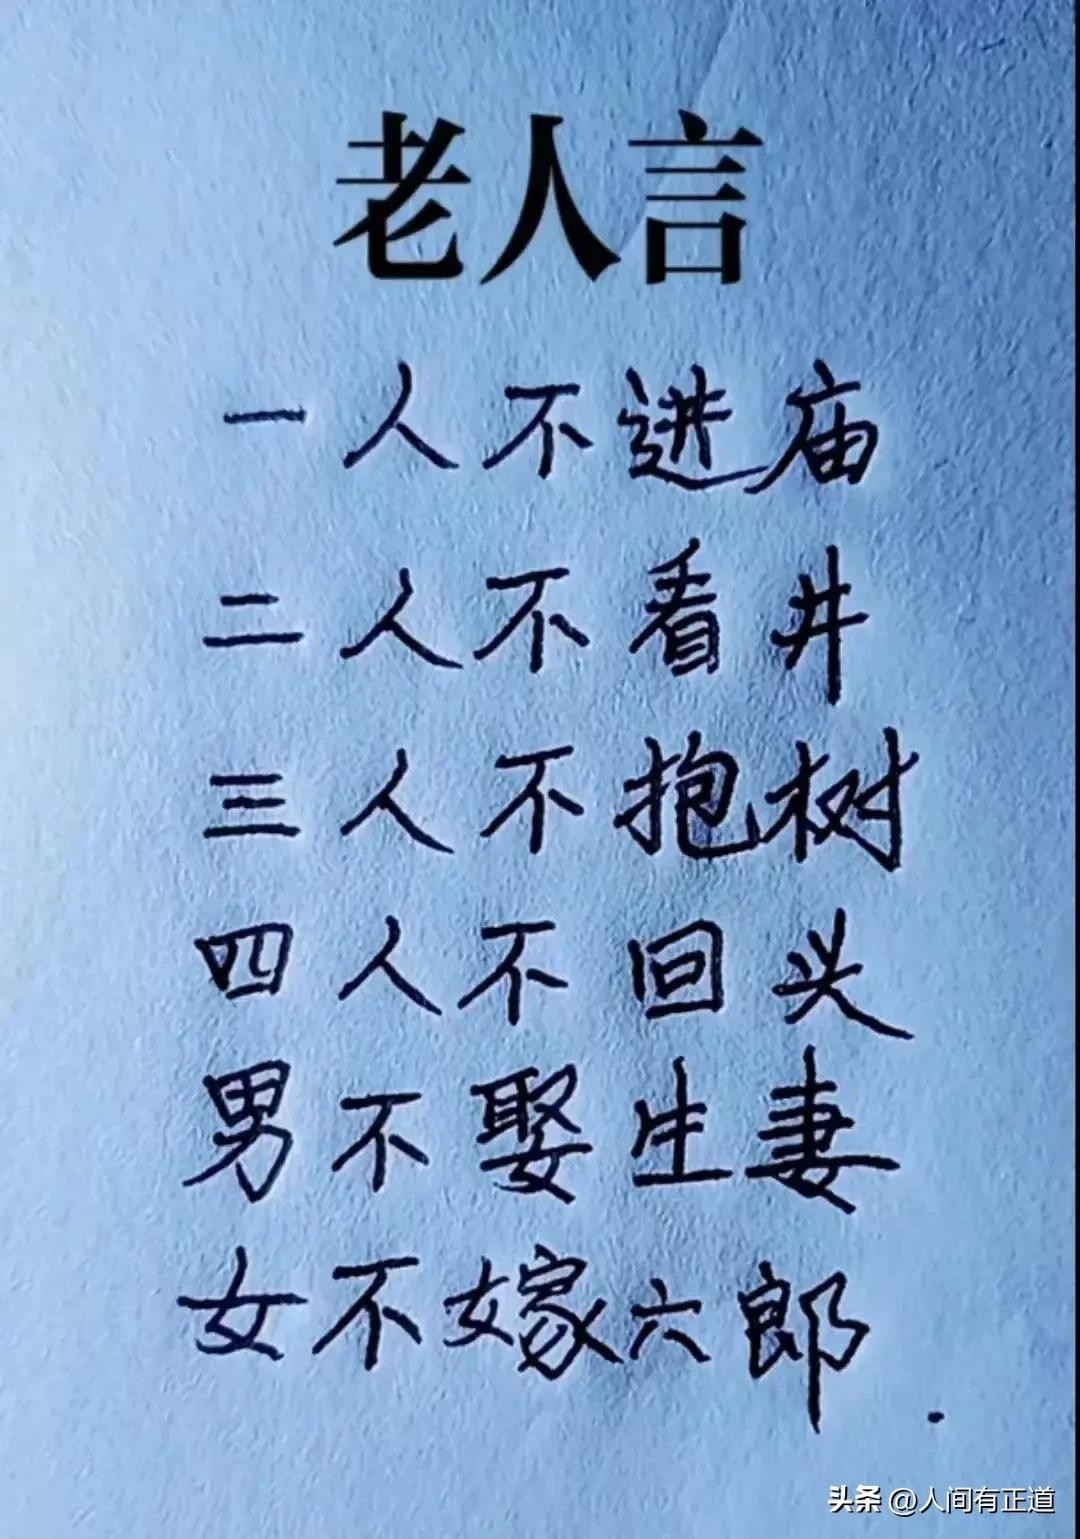 老人言
一人不进庙
二人不看井
三人不抱树
四人不回头
男不娶生妻
女不嫁六郎.
头条 @人间有正道